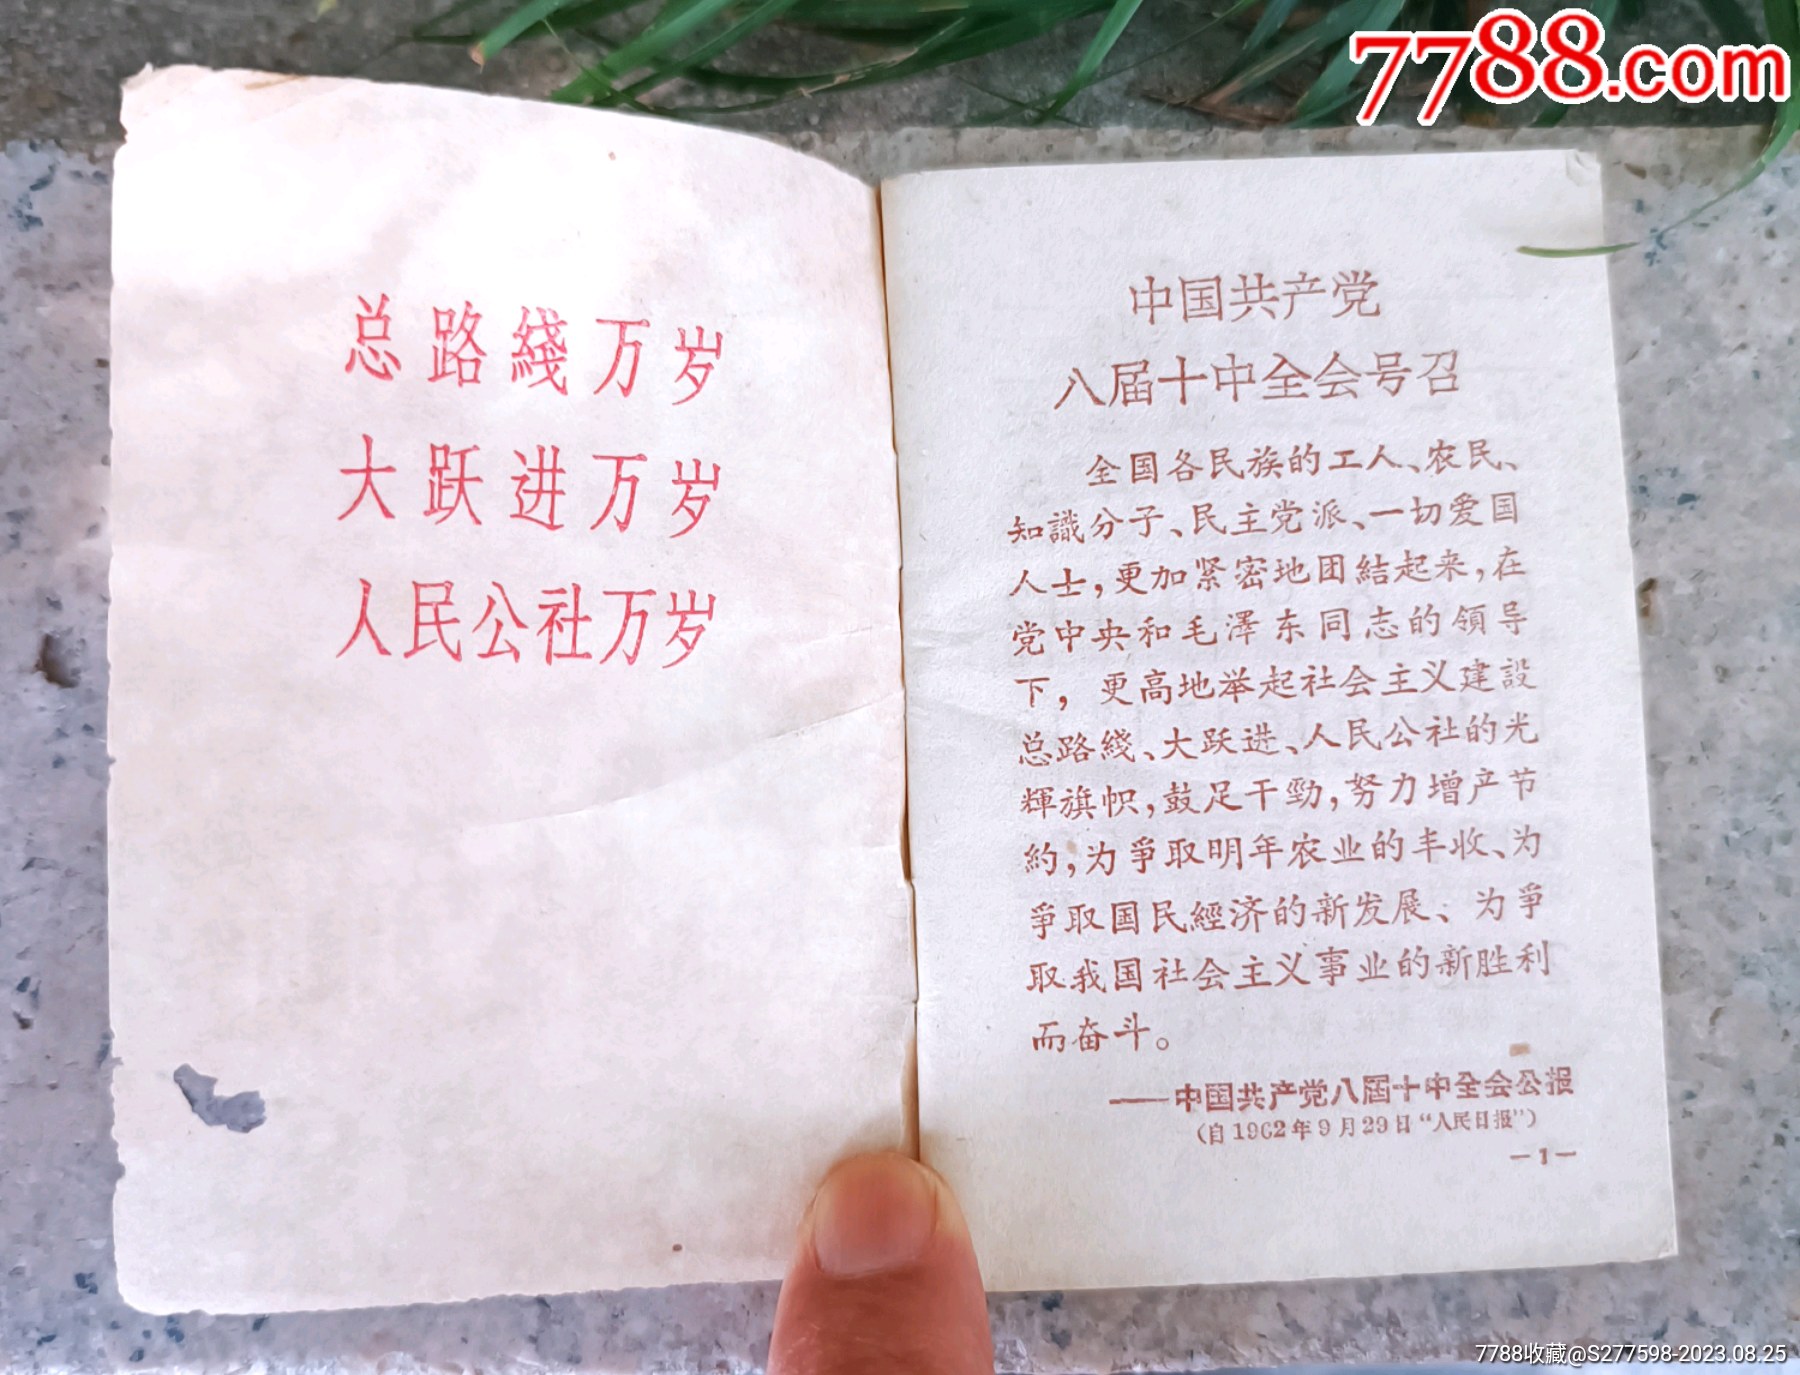 7788.com
总路綫万岁
大跃进万岁
人民公社万岁
中国共产党
八届十中全会号召
全国各民族的工人、农民、
知識分子、民主党派、一切爱国
人士，更加紧密地团結起来，在
党中央和毛澤东同志的領导
下，更高地举起社会主义建設
总路綫、大跃进、人民公社的光
輝旗帜，鼓足干勁，努力增产节
約，为爭取明年农业的丰收、为
爭取国民經济的新发展、为爭
取我国社会主义事业的新胜利
而奋斗。
——中国共产党八届十中全会公报
（自1962年9月29日“人民日报”）
—1—
7788收藏@S277598-2023.08.25